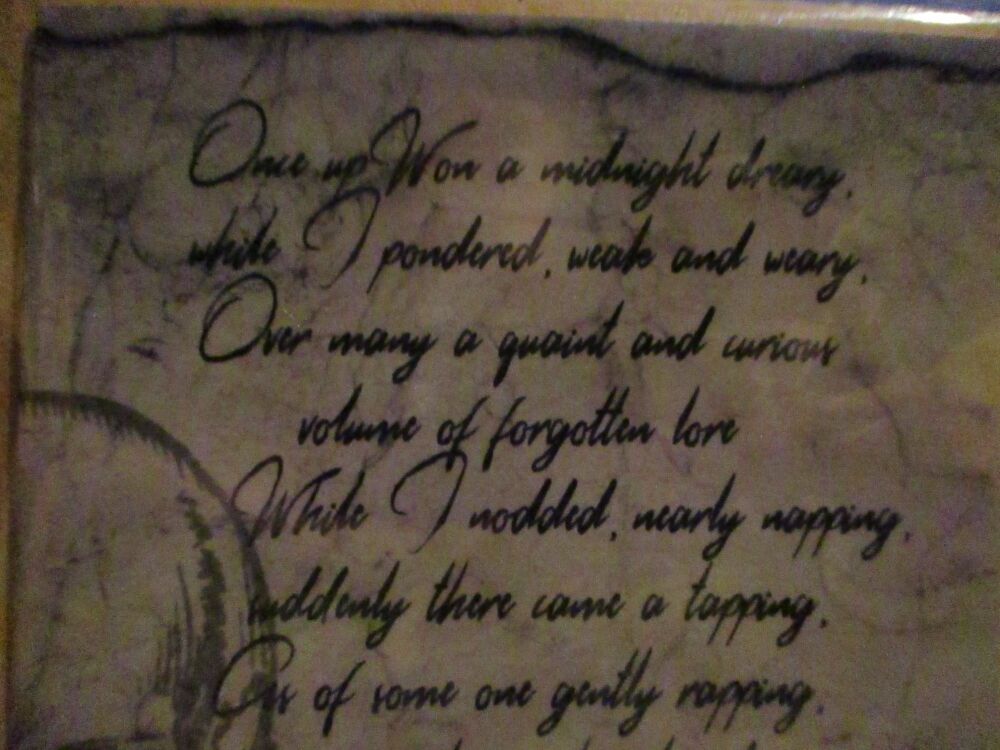 Once upWon a midnight dreary,
while I pondered, weak and weary,
Over many a quaint and curious
volume of forgotten lore
While I nodded, nearly napping,
suddenly there came a tapping,
As of some one gently rapping,